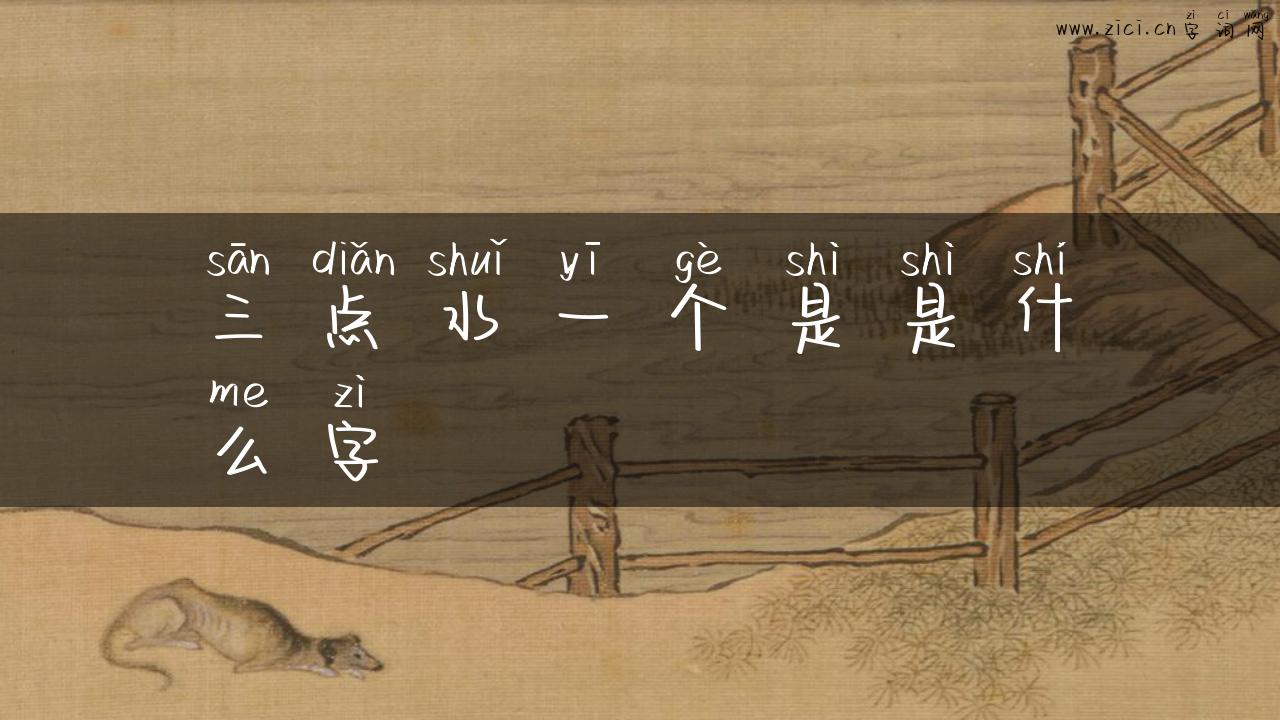 zì cí wǎng
www.zici.cn 字词网
sān diǎn shuǐ yī gè shì shì shí
三点水一个是是什
me zì
么字